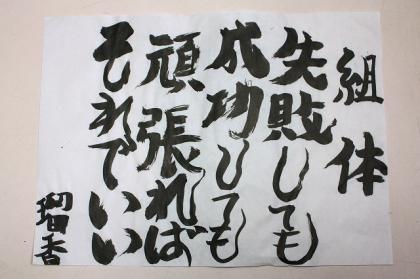 組体
失敗しても
成功しても
頑張れば
それでいい
瑠香